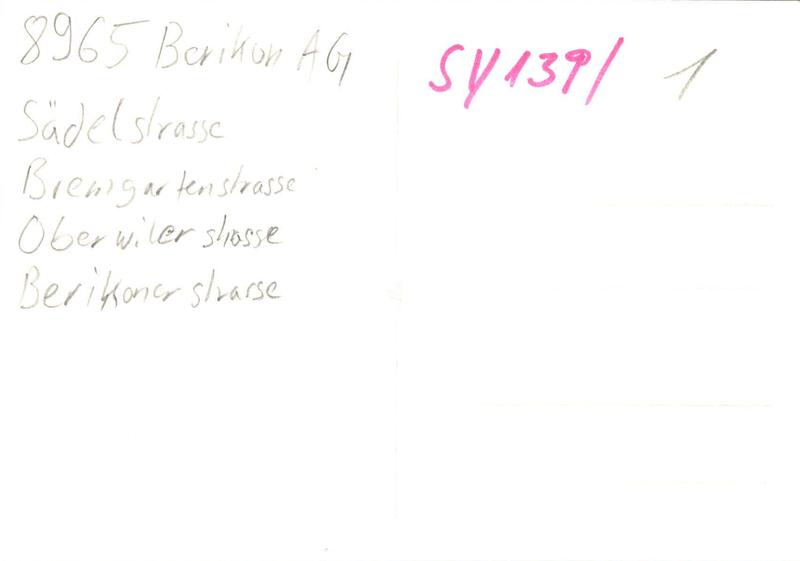 8965 Berikon AG
Sädelstrasse
Bremgartenstrasse
Oberwilerstrasse
Berikonerstrasse
SY139/ 1